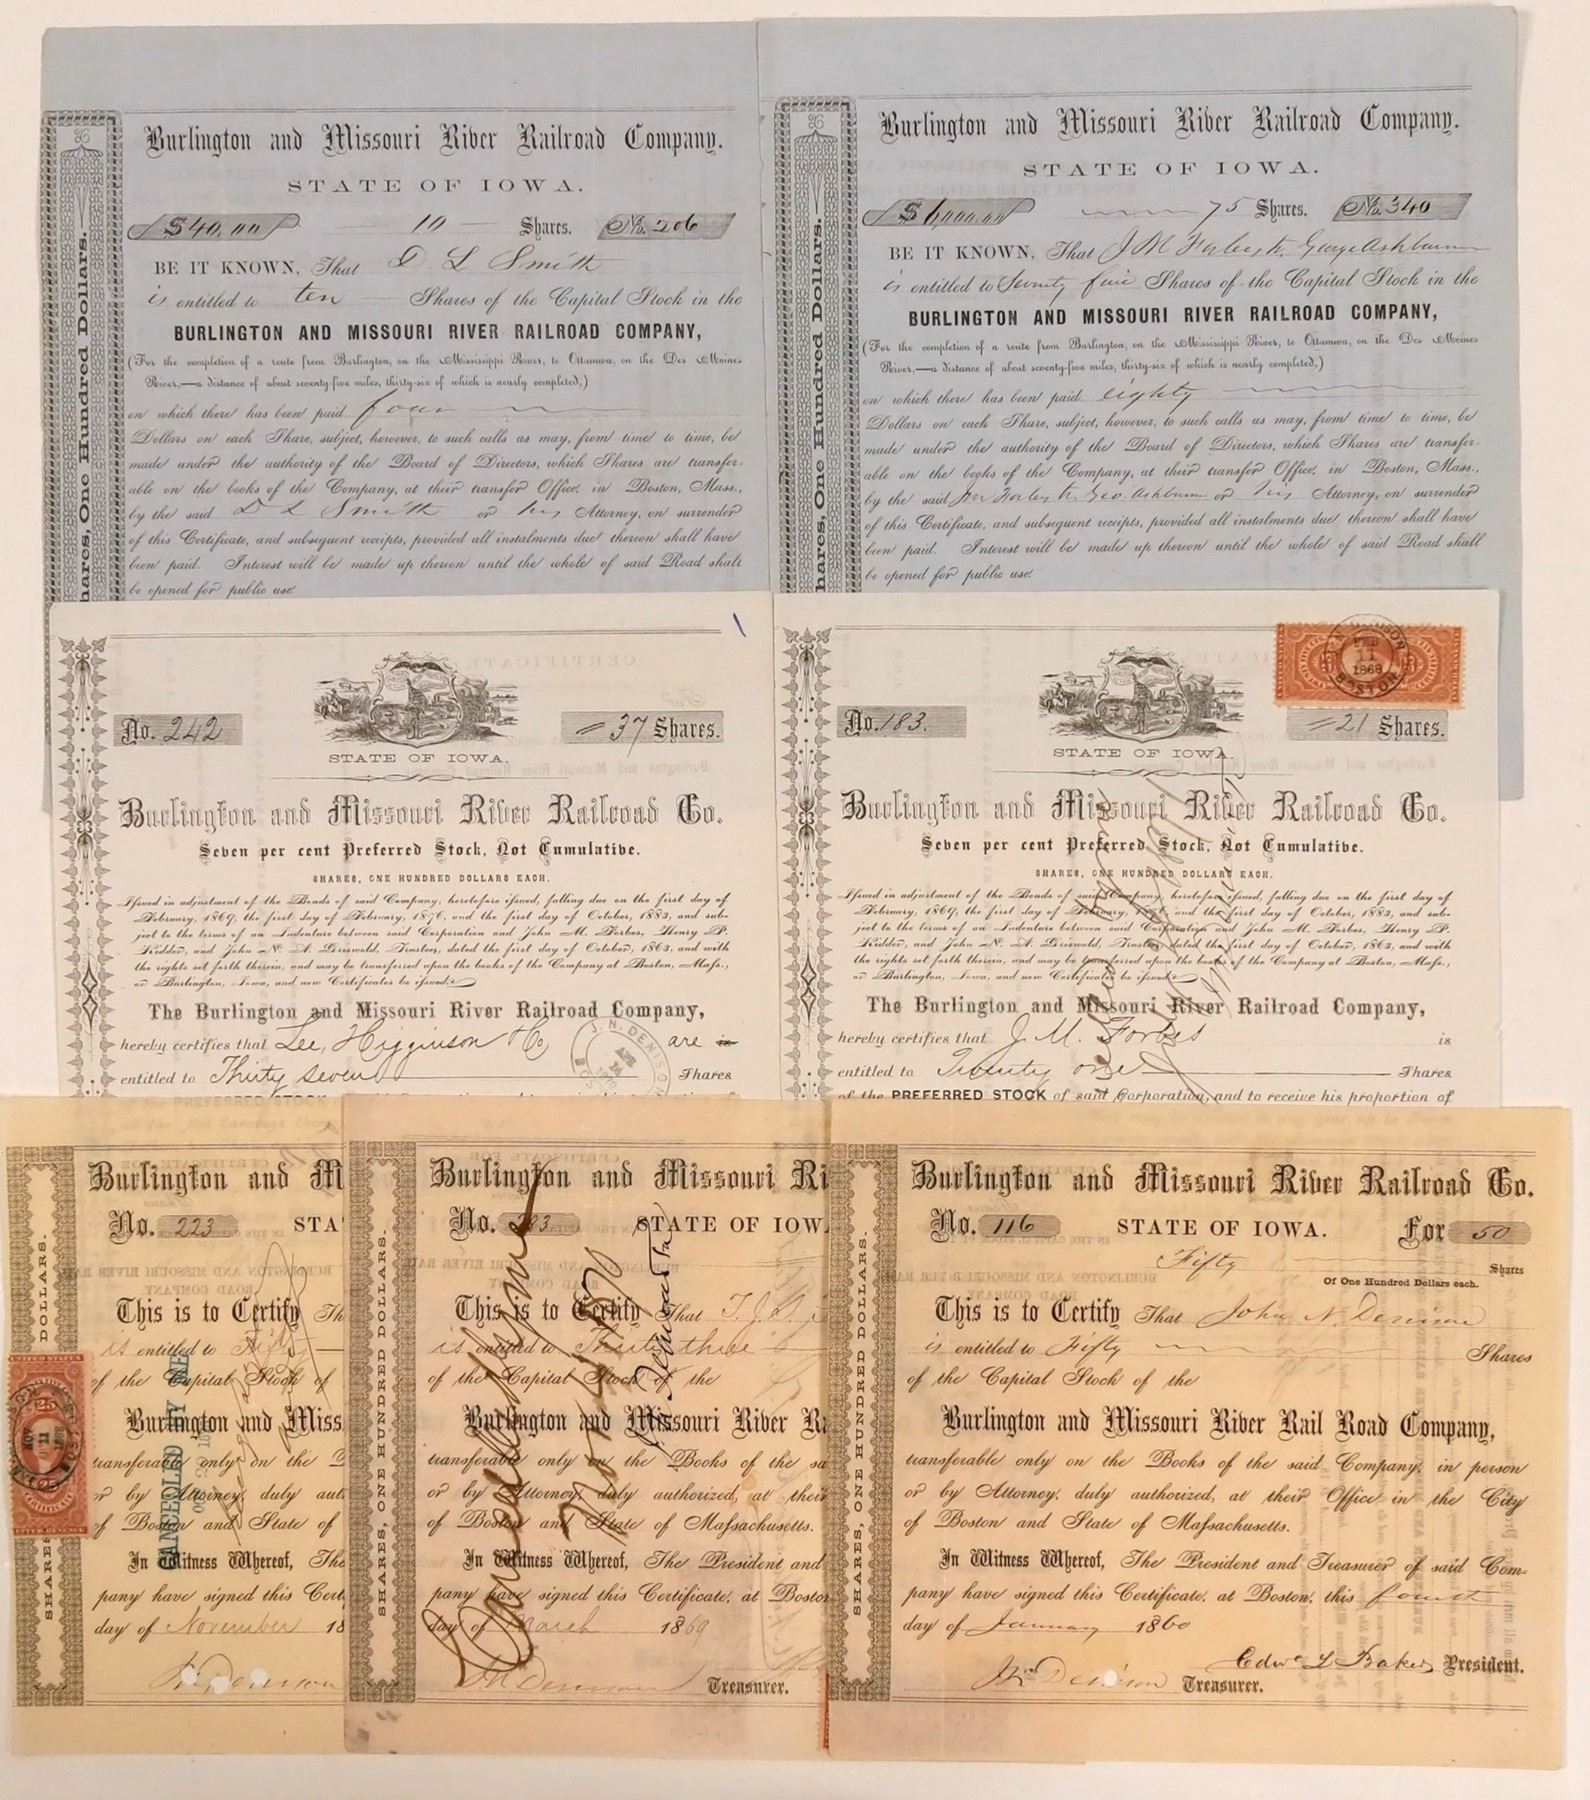 Burlington and Missouri River Railroad Company.
STATE OF IOWA.
$40.00 10 Shares. No. 206
BE IT KNOWN, That D L Smith
is entitled to ten Shares of the Capital Stock in the
BURLINGTON AND MISSOURI RIVER RAILROAD COMPANY,
(For the completion of a route from Burlington, on the Mississippi River, to Ottumwa, on the Des Moines
River,—a distance of about seventy-five miles, thirty-six of which is nearly completed,)
on which there has been paid four
Dollars on each Share, subject, however, to such calls as may, from time to time, be
made under the authority of the Board of Directors, which Shares are transfer-
able on the books of the Company, at their transfer Office, in Boston, Mass.,
by the said D L Smith or his Attorney, on surrender
of this Certificate, and subsequent receipts, provided all instalments due thereon shall have
been paid. Interest will be made up thereon until the whole of said Road shall
be opened for public use.
hares, One Hundred Dollars.
Burlington and Missouri River Railroad Company.
STATE OF IOWA.
$6,000.00 75 Shares. No. 340
BE IT KNOWN, That J M Forbes tr. George Ashburner
is entitled to Seventy five Shares of the Capital Stock in the
BURLINGTON AND MISSOURI RIVER RAILROAD COMPANY,
(For the completion of a route from Burlington, on the Mississippi River, to Ottumwa, on the Des Moines
River,—a distance of about seventy-five miles, thirty-six of which is nearly completed,)
on which there has been paid eighty
Dollars on each Share, subject, however, to such calls as may, from time to time, be
made under the authority of the Board of Directors, which Shares are transfer-
able on the books of the Company, at their transfer Office, in Boston, Mass.,
by the said J M Forbes tr. Geo. Ashburner or his Attorney, on surrender
of this Certificate, and subsequent receipts, provided all instalments due thereon shall have
been paid. Interest will be made up thereon until the whole of said Road shall
be opened for public use.
hares, One Hundred Dollars.
No. 242 37 Shares.
STATE OF IOWA.
Burlington and Missouri River Railroad Co.
Seven per cent Preferred Stock, Not Cumulative.
SHARES, ONE HUNDRED DOLLARS EACH.
Issued in adjustment of the Bonds of said Company, heretofore issued, falling due on the first day of
February, 1869, the first day of February, 1876, and the first day of October, 1883, and sub-
ject to the terms of an Indenture between said Corporation and John M. Forbes, Henry P.
Kidder, and John N. A. Griswold, Trustees, dated the first day of October, 1863, and with
the rights set forth therein, and may be transferred upon the books of the Company at Boston, Mass.,
or Burlington, Iowa, and new Certificates be issued.
The Burlington and Missouri River Railroad Company,
hereby certifies that Lee, Higginson & Co are is
entitled to Thirty seven Shares
J. N. DENISO
No. 183. 21 Shares.
FEB
11
1868
BOSTON
STATE OF IOWA.
Burlington and Missouri River Railroad Co.
Seven per cent Preferred Stock, Not Cumulative.
SHARES, ONE HUNDRED DOLLARS EACH.
Issued in adjustment of the Bonds of said Company, heretofore issued, falling due on the first day of
February, 1869, the first day of February, 1876, and the first day of October, 1883, and sub-
ject to the terms of an Indenture between said Corporation and John M. Forbes, Henry P.
Kidder, and John N. A. Griswold, Trustees, dated the first day of October, 1863, and with
the rights set forth therein, and may be transferred upon the books of the Company at Boston, Mass.,
or Burlington, Iowa, and new Certificates be issued.
The Burlington and Missouri River Railroad Company,
hereby certifies that J. M. Forbes is
entitled to Twenty one Shares
of the PREFERRED STOCK of said Corporation, and to receive his proportion of
Burlington and M
No. 223 STA
This is to Certify Th
is entitled to Fifty
of the Capital Stock of
Burlington and Miss
transferable only on the
or by Attorney, duly aut
of Boston and State of
In Witness Whereof, The
pany have signed this Cert
day of November 18
J N Denison
SHARES
DOLLARS.
25
CANCELLED
Burlington and Missouri Ri
No. 283 STATE OF IOW
This is to Certify That T. J.
is entitled to Thirty three
of the Capital Stock of the
Burlington and Missouri River Ra
transferable only on the Books of the sa
or by Attorney, duly authorized, at their
of Boston and State of Massachusetts.
In Witness Whereof, The President and
pany have signed this Certificate, at Boston
day of March 1869
J N Denison Treasurer.
SHARES, ONE HUNDRED DOLLARS.
Cancelled
Burlington and Missouri River Railroad Co.
No. 116 STATE OF IOWA. For 50
Fifty Shares
Of One Hundred Dollars each.
This is to Certify That John N. Denison
is entitled to Fifty Shares
of the Capital Stock of the
Burlington and Missouri River Rail Road Company,
transferable only on the Books of the said Company, in person
or by Attorney, duly authorized, at their Office in the City
of Boston and State of Massachusetts.
In Witness Whereof, The President and Treasurer of said Com-
pany have signed this Certificate, at Boston, this fourth
day of January 1860
Edwd L Baker President.
J N Denison Treasurer.
SHARES, ONE HUNDRED DOLLARS.